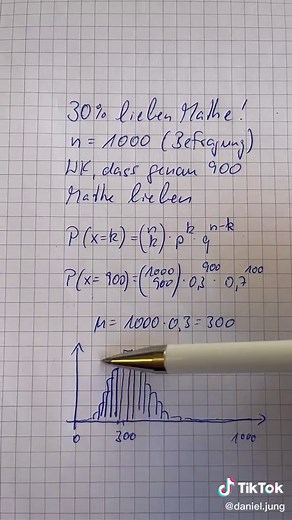 30% lieben Mathe!
n = 1000 (Befragung)
WK, dass genau 900
Mathe lieben
P(x=k) = (n k) · p^k · q^n-k
P(x=900) = (1000 900) · 0,3^900 · 0,7^100
μ = 1000 · 0,3 = 300
0 300 1000
TikTok
@daniel.jung